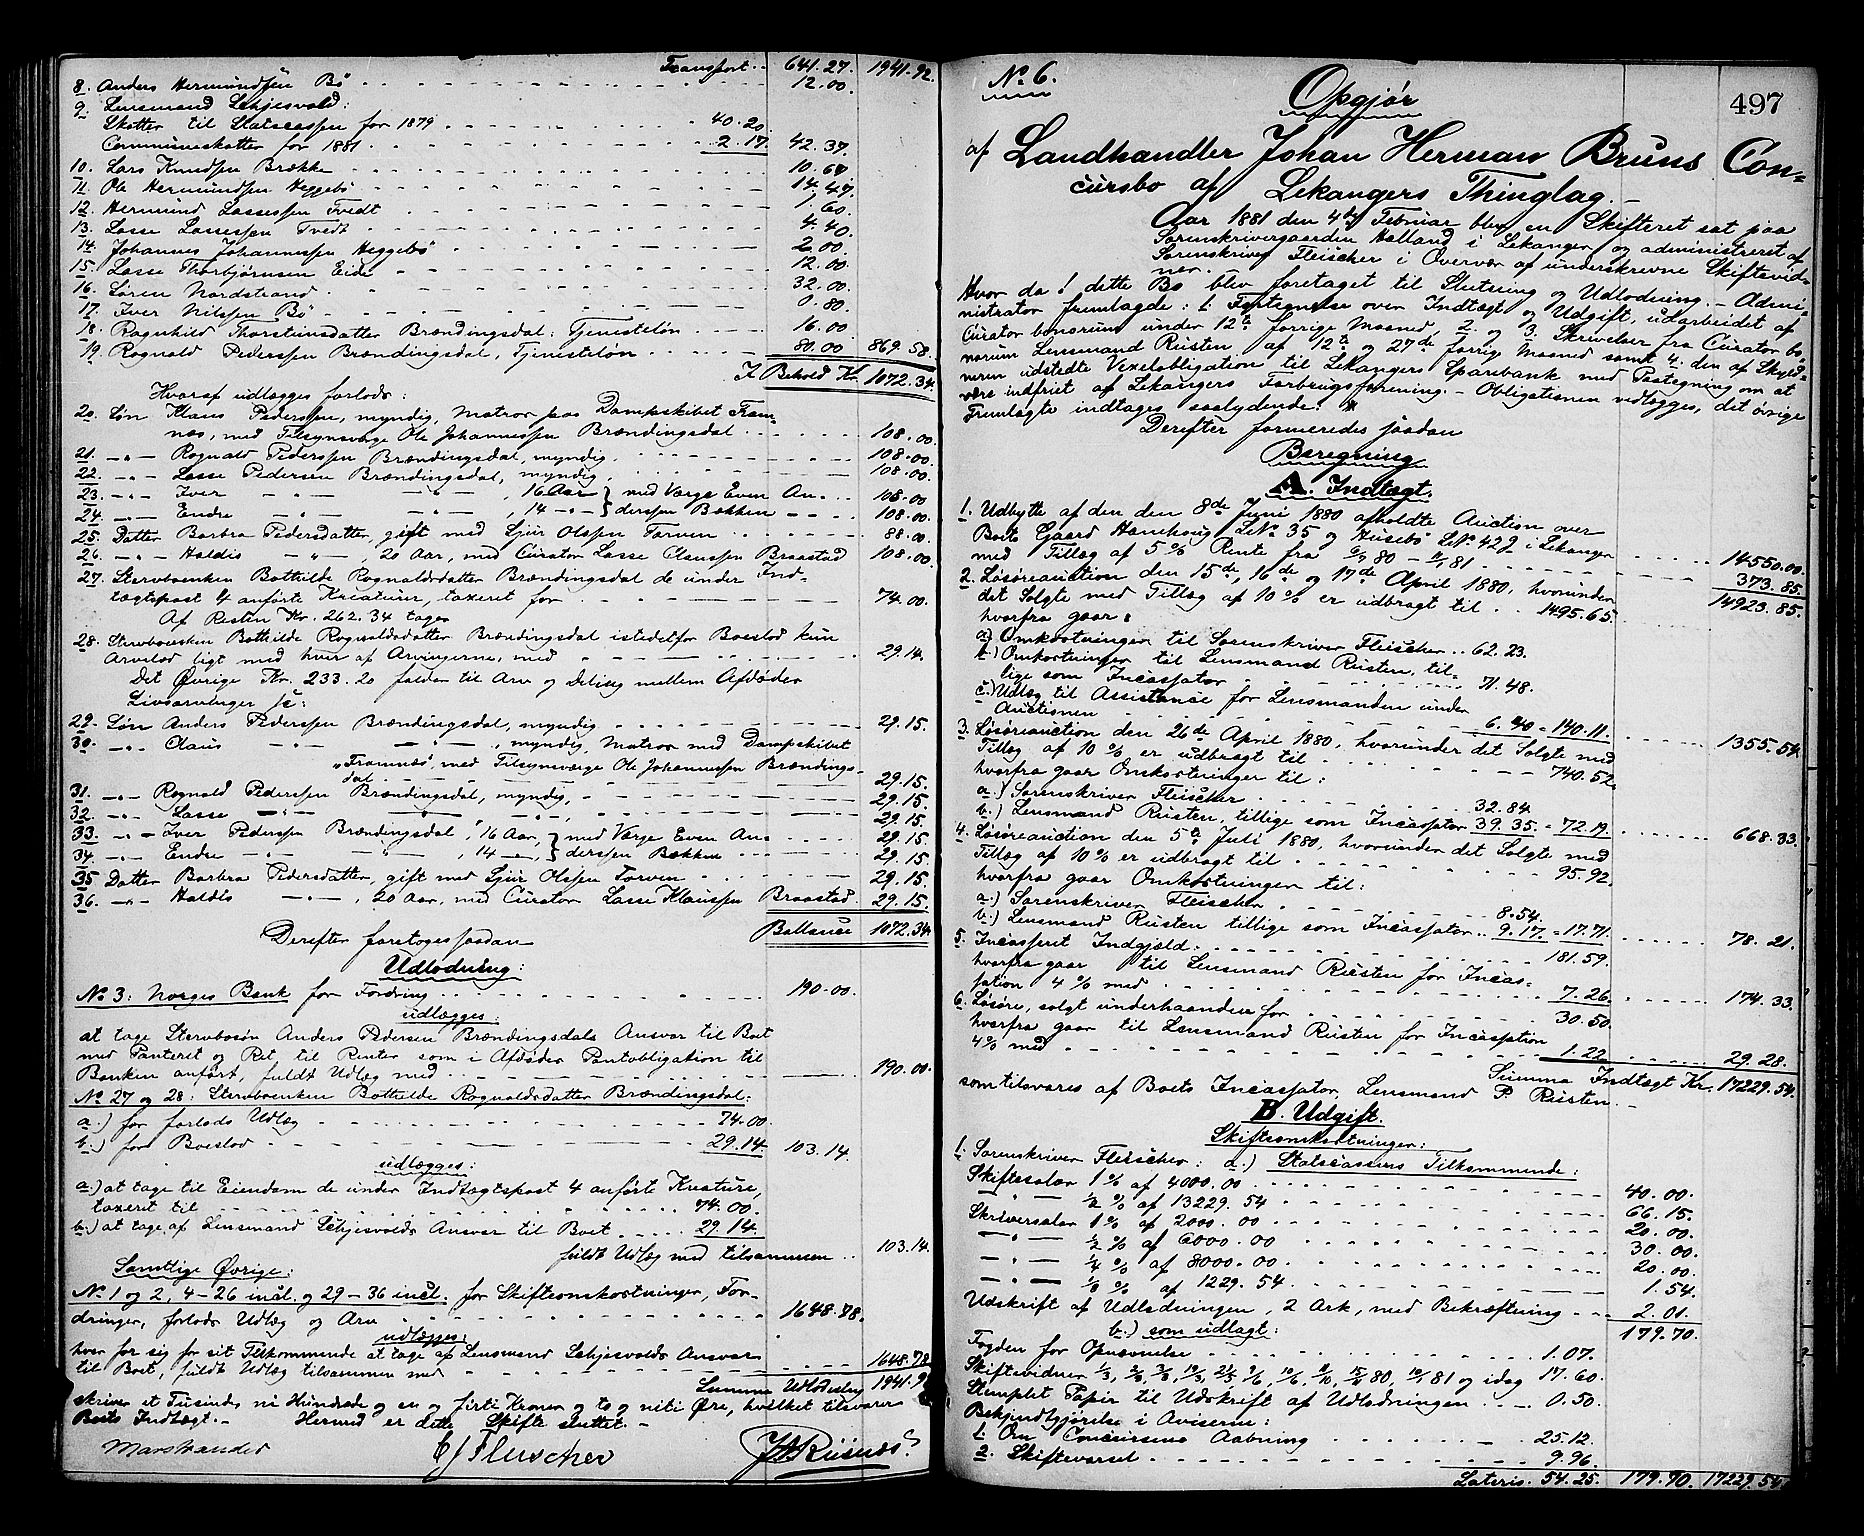 Transport .. 641.27. 1941.92.
8. Anders Hermundssen Bö 12.00.
9. Lensmand Schjesvold:
Skatter til Statscassen for 1879 40.20.
Communeskatter for 1881 2.17. 42.37.
10. Lars Knudssen Brække 10.67.
11. Ole Hermundssen Heggebö 14.47.
12. Hermund Lassessen Tvedt 1.60.
13. Lasse Lassessen Tvedt 4.40.
14. Johannes Johannessen Heggebö 2.00.
15. Lasse Thorbjörnsen Eide 12.00.
16. Sören Nordstrand 32.00.
17. Iver Nilssen Bö 0.80.
18. Ragnhild Thorsteinsdatter Brændingsdal: Tjenestelön 16.00.
19. Rognald Pederssen Brændingsdal, Tjenestelön 80.00 869.58.
I Behold Kr. 1072.34.
Hvoraf udlægges forlods:
20. Søn Klaus Pederssen, myndig, Matros paa Dampskibet Fram-
næs, med Tilsynsværge Ole Johannessen Brændingsdal 108.00.
21. -"- Rognald Pederssen Brændingsdal, myndig 108.00.
22. -"- Lasse Pedersen Brændingsdal, myndig 108.00.
23. -"- Iver -"- -"- , 16 Aar } med Værge Even An- 108.00
24. -"- Endre -"- -"- , 14 -"- } derssen Bakken 108.00.
25. Datter Barbra Pedersdatter, gift med Sjur Olssen Torven 88.00.
26. -"- Haldis -"- 20 Aar, med Curator Lasse Claussen Braastad 108.00.
27. Stervboenken Bothilde Rognaldsdatter Brændingsdal de under Ind-
tægtspost 4 anförte Kreaturer, taxeret for 74.00.
Af Resten Kr. 262.34 tages
28. Stervboenken Bothilde Rognaldsdatter Brændingsdal istedetfor Boeslod kun
Arvelod ligt med hver af Arvingerne, med 29.14.
Det Øvrige Kr. 233.20 falder til Arv og Deling mellem Afdødes
Livsarvinger
29. Søn Anders Pederssen Brændingsdal, myndig 29.15.
30. -"- Claus -"- -"- , myndig, Matros med Dampskibet
"Framnæs", med Tilsynsværge Ole Johannessen Brændings-
dal 29.15.
31. -"- Rognald Pederssen Brændingsdal, myndig, 29.15.
32. -"- Lasse -"- -"- -"-, 29.15.
33. -"- Iver Pederssen Brændingsdal, 16 Aar, } med Værge Even An- 29.15.
34. -"- Endre -"- -"- , 14 -"-, } derssen Bakken 29.15.
35 Datter Barbra Pedersdatter, gift med Sjur Olssen Torven 29.15.
36. -"- Haldis -"- , 20 Aar, med Curator Lasse Klaussen Braastad. 29.15.
Ballance 1072.34.
Derefter foretoges saadan
Udlodning:
No 3: Norges Bank for Fordring 190.00.
udlægges:
at tage Stervbosøn Anders Pedersen Brændingsdals Ansvar til Boet
med Panteret og Ret til Renter som i Afdødes Pantobligation til
Banken anført, fuldt Udlæg med 190.00.
No 27 og 28: Stervboenken Bothilde Rognaldsdatter Brændingsdal:
a.) for forlods Udlæg 74.00.
b.) for Boeslod 29.14. 103.14.
udlægges:
a.) at tage til Eiendom de under Indtægtspost 4 anførte Kreature,
taxeret til 74.00.
b.) at tage af Lensmand Schjesvolds Ansvar til Boet 29.14.
fuldt Udlæg med tilsammen 103.14.
Samtlige Øvrige:
No 1 og 2, 4-26 incl. og 29-36 incl. for Skifteomkostninger, For-
dringer, forlods Udlæg og Arv 1648.78.
udlægges:
hver for sig for sit Tilkommende at tage af Lensmand Schjesvolds Ansvar
til Boet, fuldt Udlæg tilsammen med 1648.78
Summa Udlodning 1941.9
skriver et Tusinde ni Hundrede og en og firti Kroner og to og niti Øre, hvilket tilsvarer
Boets Indtægt. - Hermed er dette Skifte sluttet. -
Marstrander CJFleischer

No 6. 497
Opgjør
af Landhandler Johan Herman Bruns Con-
cursbo af Lekangers Thinglag. -
Aar 1881 den 4de Februar blev en Skifteret sat paa
Sorenskrivergaarden Holland i Lekanger og administreret af
Sorenskriver Fleischer i Overvær af underskrevne Skiftevid-
ner.
Hvor da dette Bo blev foretaget til Slutning og Udlodning. - Admi-
nistrator fremlagde: 1. Fortegnelse over Indtægt og Udgift, udarbeidet af
Curator bonorum under 12te forrige Maaned, 2. og 3. Skrivelser fra Curator bo-
norum Lensmand Rusten af 12te og 27de forrige Maaned samt 4. den af Skyld-
neren udstedte Vexelobligation til Lekangers Sparebank med Paategning om at
være indfriet af Lekangers Forbrugsforening. - Obligationen vedlægges, det øvrige
Fremlagte indtages saalydende:
Derefter formeredes saadan
Beregning
A. Indtægt.
1. Udbytte af den den 8de Juni 1880 afholdte Auction over
Boets Gaard Hamehoug LNo 35 og Husebö LNo 42g i Lekanger 14550.00.
med Tillæg af 5% Rente fra 80 - 81 373.85.
14923.85.
2. Løsøreauction den 15de, 16de og 17de April 1880, hvorunder
det Solgte med Tillæg af 10% er udbragt til 1495.65.
hvorfra gaar:
a.) Omkostninger til Sorenskriver Fleischer .. 62.23.
b.) Omkostninger til Lensmand Rusten, til-
lige som Incassator 71.48.
c.) Udlæg til Assistance for Lensmanden under
Auctionen 6.40 = 140.11. 1355.54.
3. Løsøreauction den 26de April 1880, hvorunder det Solgte med
Tillæg af 10% er udbragt til 740.52.
hvorfra gaar Omkostninger til:
a.) Sorenskriver Fleischer 32.84.
b.) Lensmand Rusten, tillige som Incassator 39.35. = 72.19. 668.33.
4. Løsøreauction den 5te Juli 1880, hvorunder det Solgte med
Tillæg af 10% er udbragt til 95.92.
hvorfra gaar Omkostninger til:
a.) Sorenskriver Fleischer 8.54.
b.) Lensmand Rusten tillige som Incassator .. 9.17. = 17.71. 78.21.
5. Incasseret Indgjæld 181.59.
hvorfra gaar til Lensmand Rusten for Incas-
sation 4% med 7.26. 174.33.
6. Løsøre, solgt underhaanden for 30.50.
hvorfra gaar til Lensmand Rusten for Incassation
4% med 1.22 29.28.
Summa Indtægt Kr. 17229.54.
som tilsvares af Boets Incassator, Lensmand P. Rusten. -
B. Udgift.
Skifteomkostninger:
1. Sorenskriver Fleischer: a.) Statscassens Tilkommende:
Skiftesalær 1% af 4000.00 40.00.
-"- ½ % af 13229.54 66.15.
Skriversalær 1% af 2000.00 20.00.
-"- ½ % af 6000.00 30.00.
-"- ¼ % af 8000.00. 20.00.
-"- ⅛ % af 1229.54. 1.54.
Udskrift af Udlodningen, 2 Ark, med Bekræftning 2.01.
179.70.
b.) som udlagt:
Fogden for Opnævnelse 1.07.
Skiftevidner 80, 81 og idag 17.60.
Stemplet Papir til Udskrift af Udlodningen 0.50.
Bekjendtgjørelse i Aviserne:
1. Om Concursens Aabning 25.12.
2. Skiftevarsel 9.96.
Lateris. 54.25. 179.70. 17229.54.